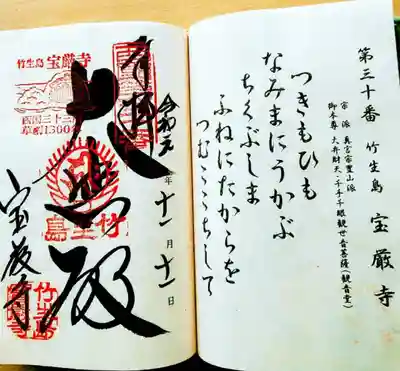 第三十番 竹生島 宝厳寺
宗派 真言宗豊山派
御本尊 大弁財天・千手千眼観世音菩薩(観音堂)
つきもひも
なみまにうかぶ
ちくぶしま
ふねにたからを
つむここちして
奉拝
令和元年十一月十一日
竹生島 宝厳寺
西国三十三所
草創1300年
大悲殿
竹生島
宝厳寺